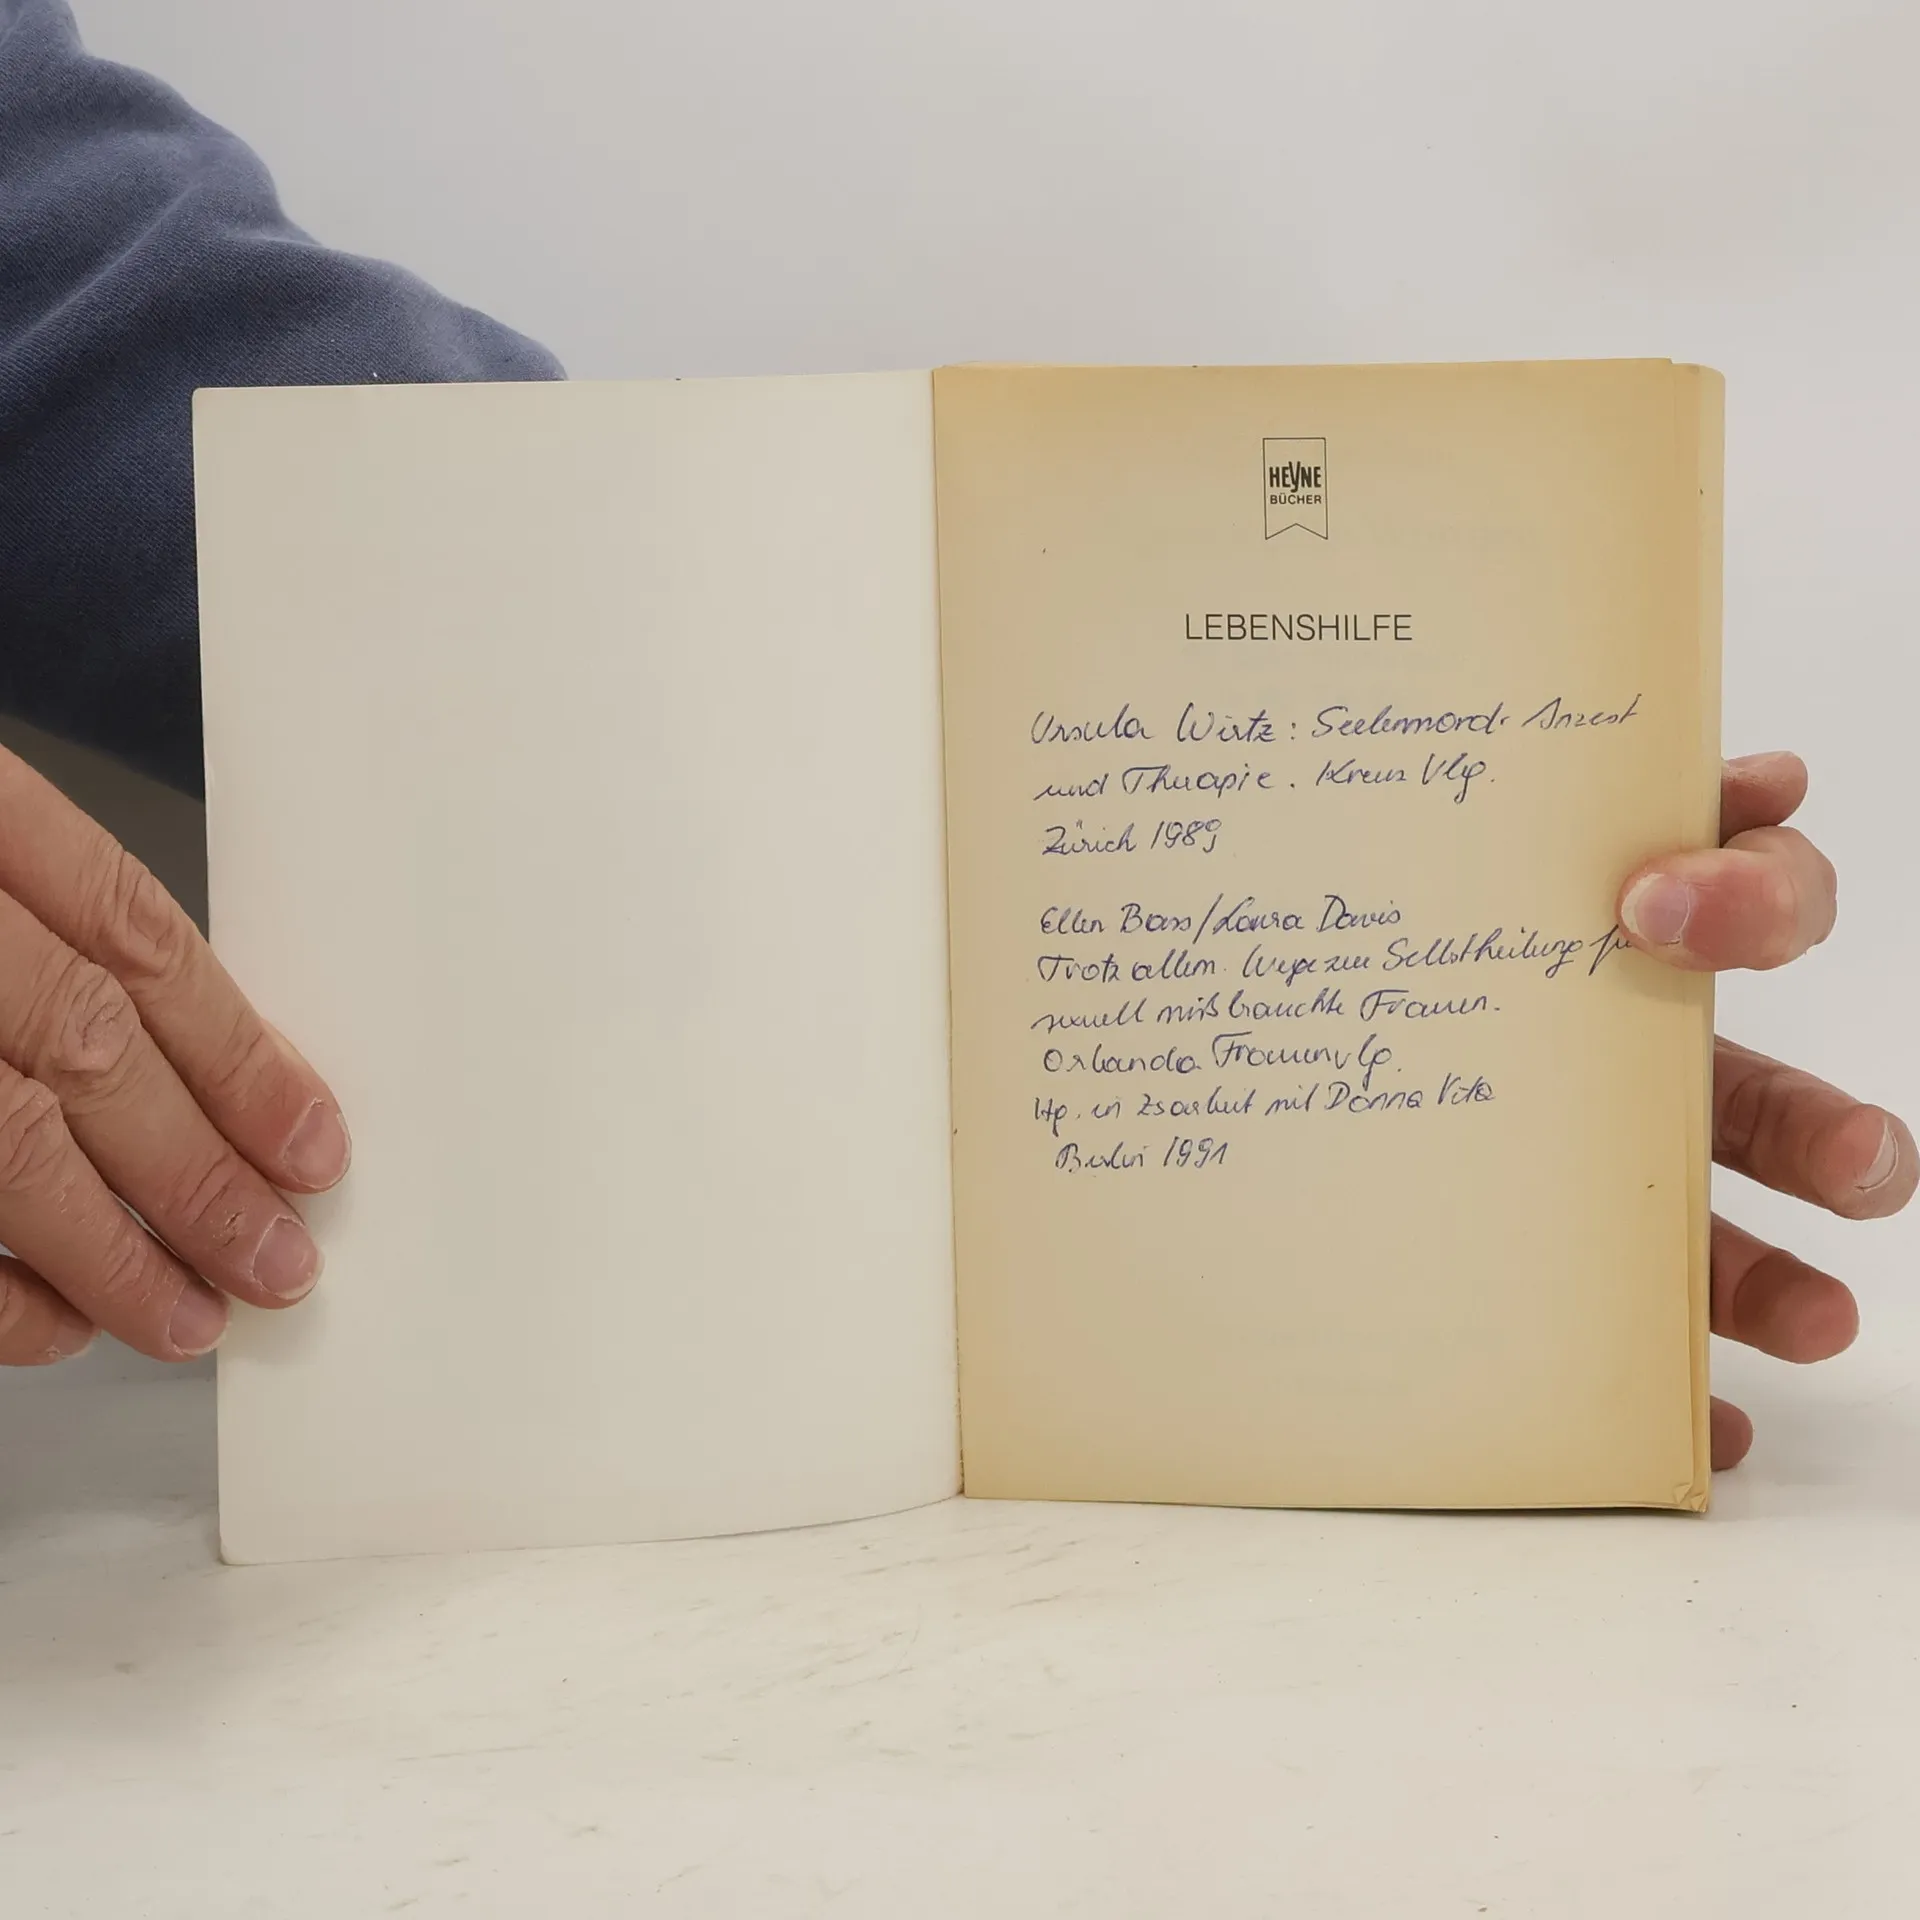 HEYNE
BÜCHER
LEBENSHILFE
Ursula Wirtz: Seelenmord. Inzest
und Therapie. Kreuz Vlg.
Zürich 1989
Ellen Bass/Laura Davis
Trotz allem. Wege zur Selbstheilung fü
sexuell mißbrauchte Frauen.
Orlanda Frauenvlg.
Hg. in Zsarbeit mit Donna Vita
Berlin 1991